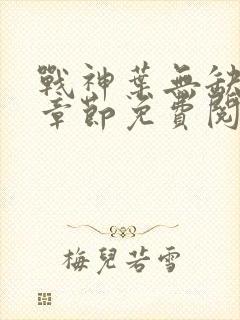 戰神葉無缺
章節免費閱
梅兒若雪